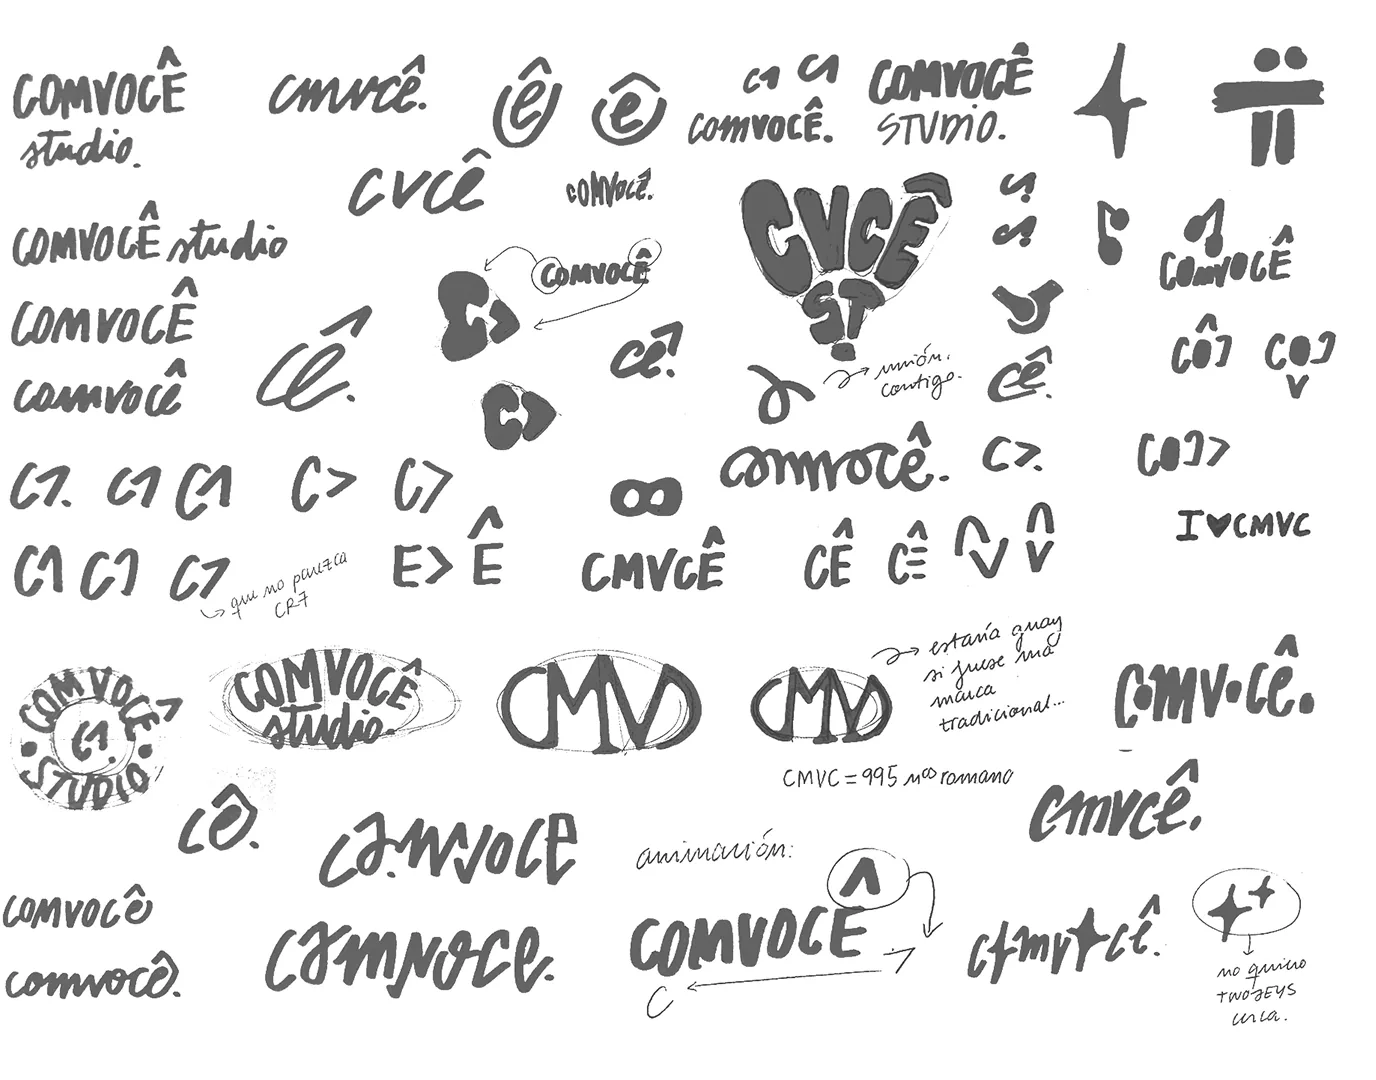 COMVOCÊ
studio.
cmvcê.
ê
ê
C1
C1
COMVOCÊ.
COMVOCÊ
STUDIO.
cvcê
COMVOCÊ.
COMVOCÊ studio
COMVOCÊ
CVCÊ
ST.
COMVOCÊ
COMVOCÊ
cê.
C>
cê?
unión.
contigo.
cê.
CÔ]
CO]
V
comvocê
C>
C1. C1 C1 C> C>
comvocê.
C>.
CO]>
I ♥ CMVC
C1 C1 C7
que no parezca
CR7
E> Ê
CMVCÊ
CÊ CÊ
COMVOCÊ
C1.
STUDIO
COMVOCÊ
studio.
CMV
CMV
estaría guay
si fuese una
marca
tradicional...
C•MV•CÊ.
CMVC = 995 nºs romano
cê.
comvoce
animación:
cmvcê.
^
COMVOCÊ
C
COMVOCÊ
comvocê.
comvoce.
c+mv+cê.
no quiero
twoJEYS
cerca.